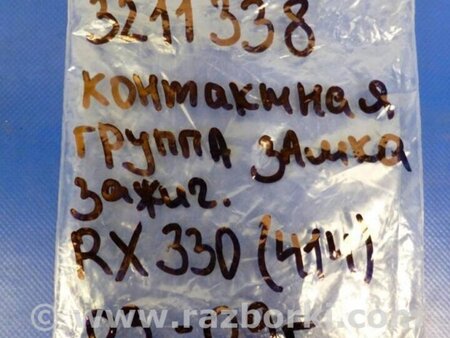 3211338
контактная
группа замка
зажиг.
RX 330 (414)
03-09г
© www.razborki.com